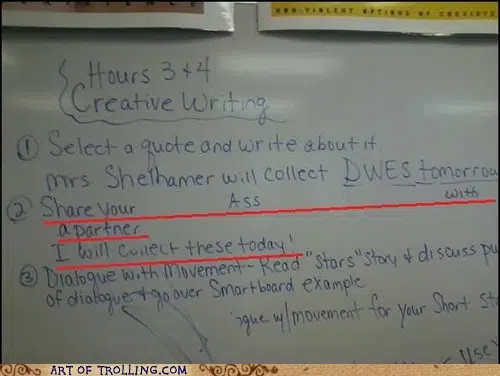 NON-VIOLENT OPTIONS OF
Hours 3 & 4
Creative Writing
① Select a quote and write about it.
Mrs. Shelhamer will collect DWES tomorrow
② Share your Ass with
a partner
I will collect these today!
③ Dialogue with Movement - Read "Stars" story & discuss
of dialogue & go over Smartboard example
w/movement for your Short
Use
ART OF TROLLING.COM